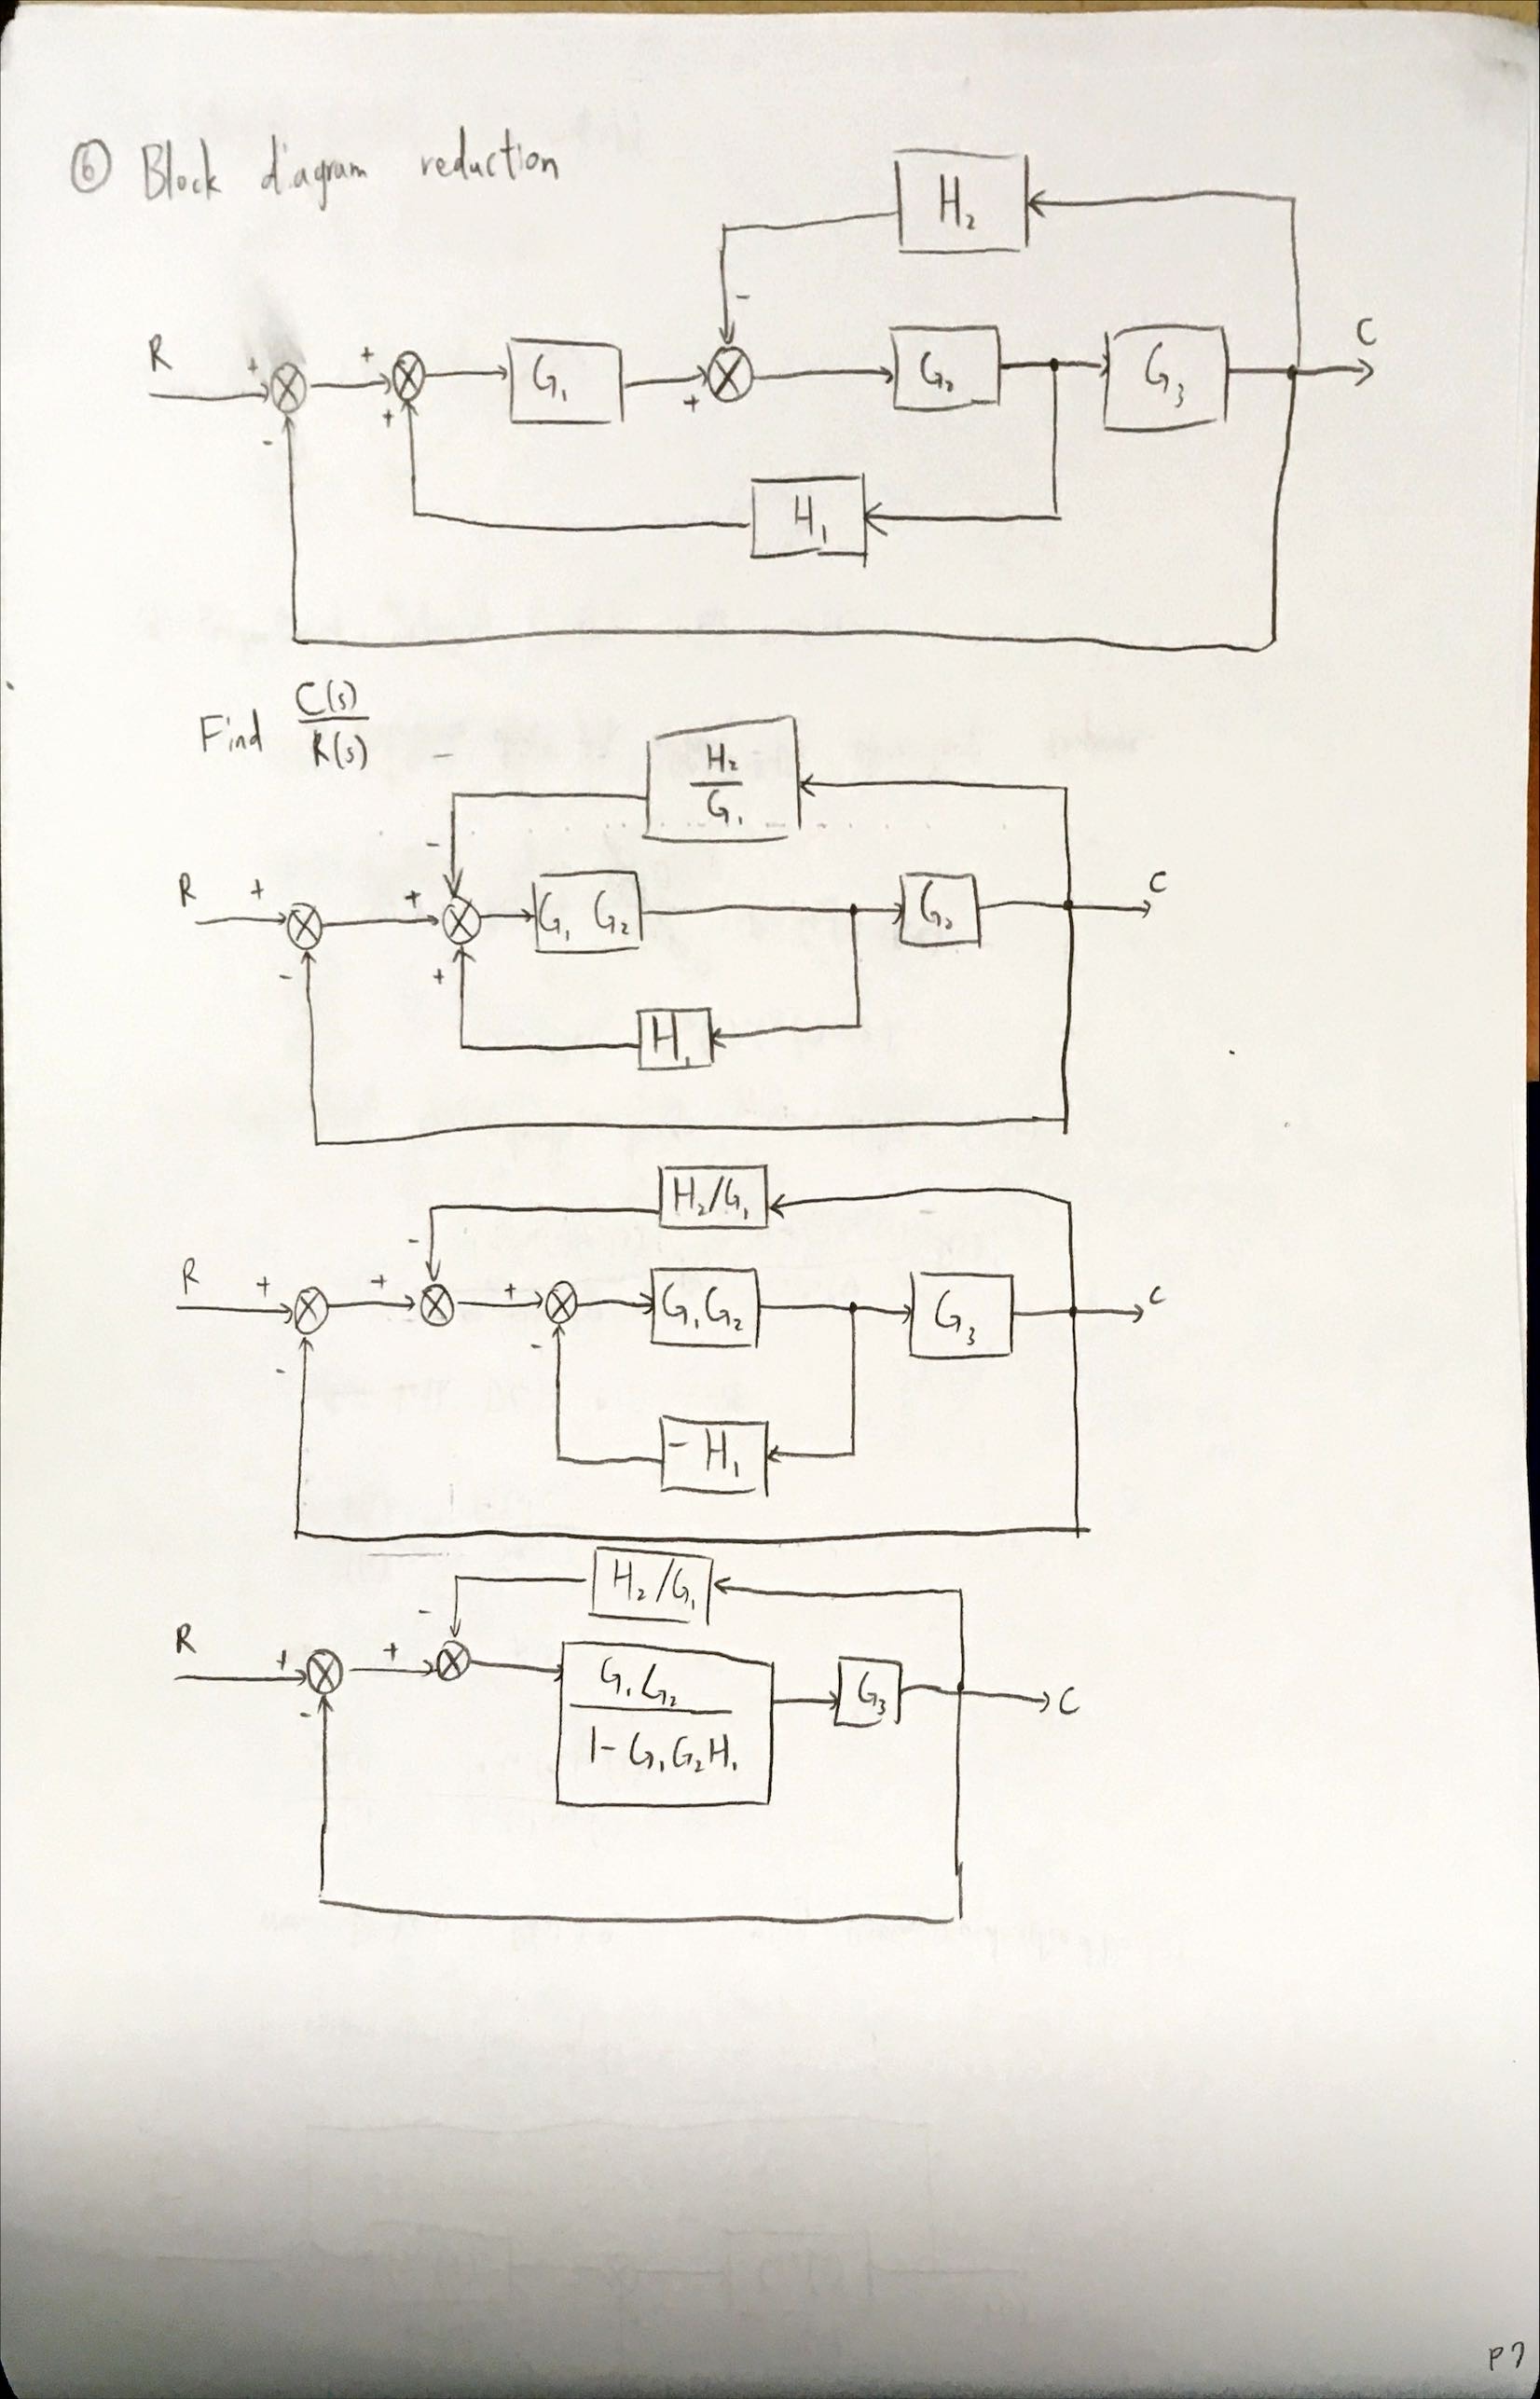 ⑥ Block diagram reduction
H₂
-
R + + G₁ + G₂ G₃ C
- +
H₁
Find C(s)/R(s)
-
H₂/G₁
-
R + + G₁ G₂ G₃ C
- +
H₁
H₂/G₁
-
R + + + G₁G₂ G₃ C
- -
-H₁
H₂/G₁
-
R + + G₁G₂ G₃ C
- 1-G₁G₂H₁
P7